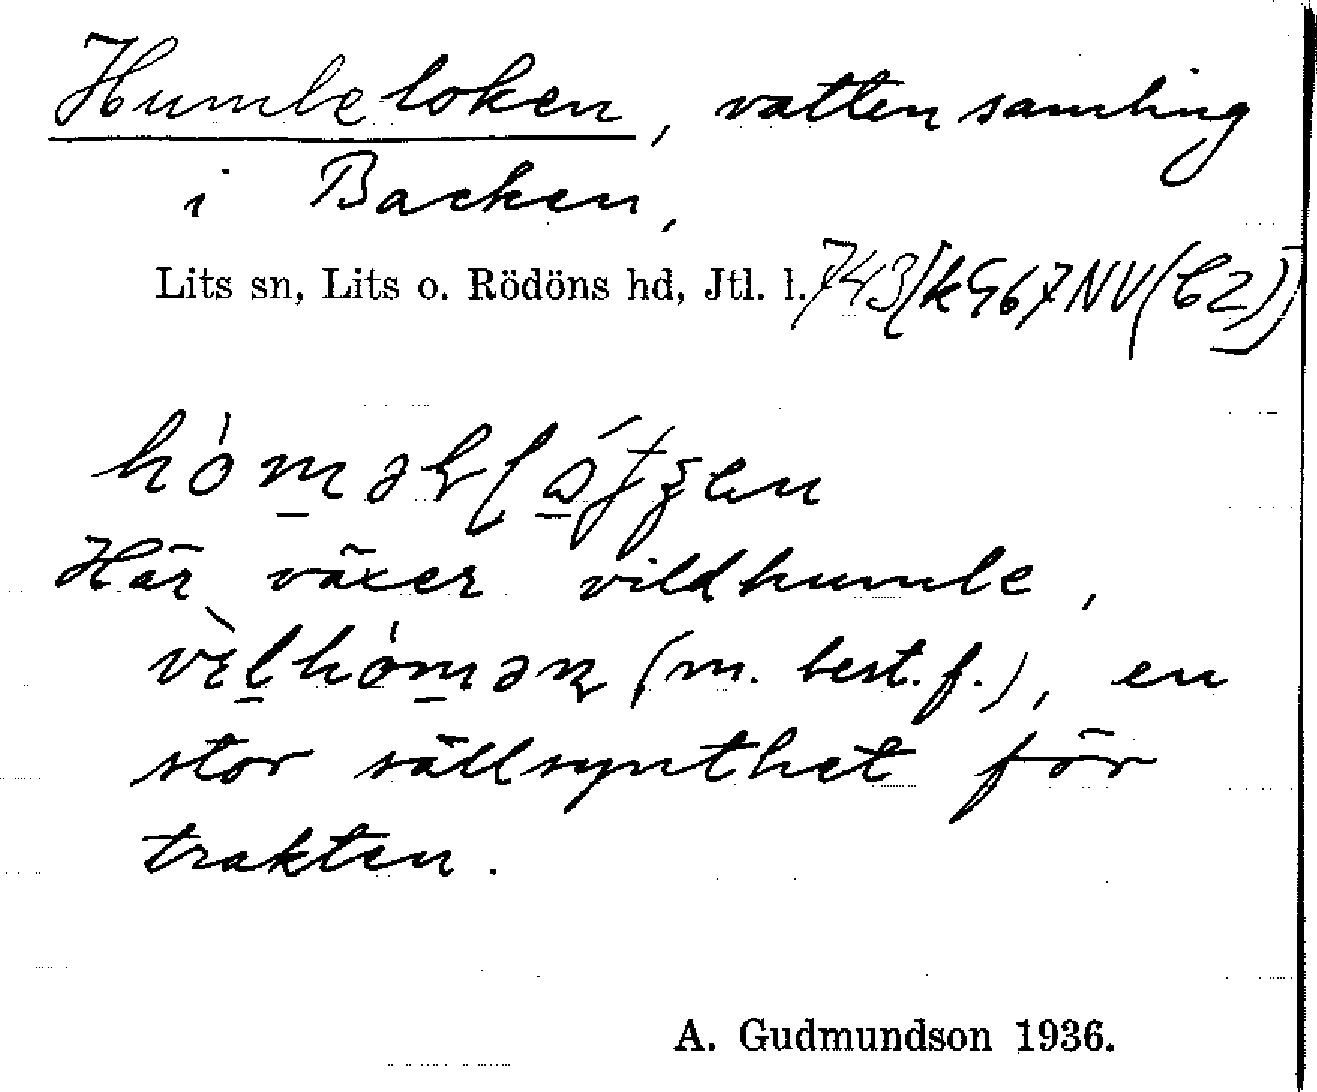 Humleloken, vattensamling
i Backen,
Lits sn, Lits o. Rödöns hd, Jtl. l.
Här växer vildhumle,
(m. best. f.), en
stor sällsynthet för
trakten.
A. Gudmundson 1936.